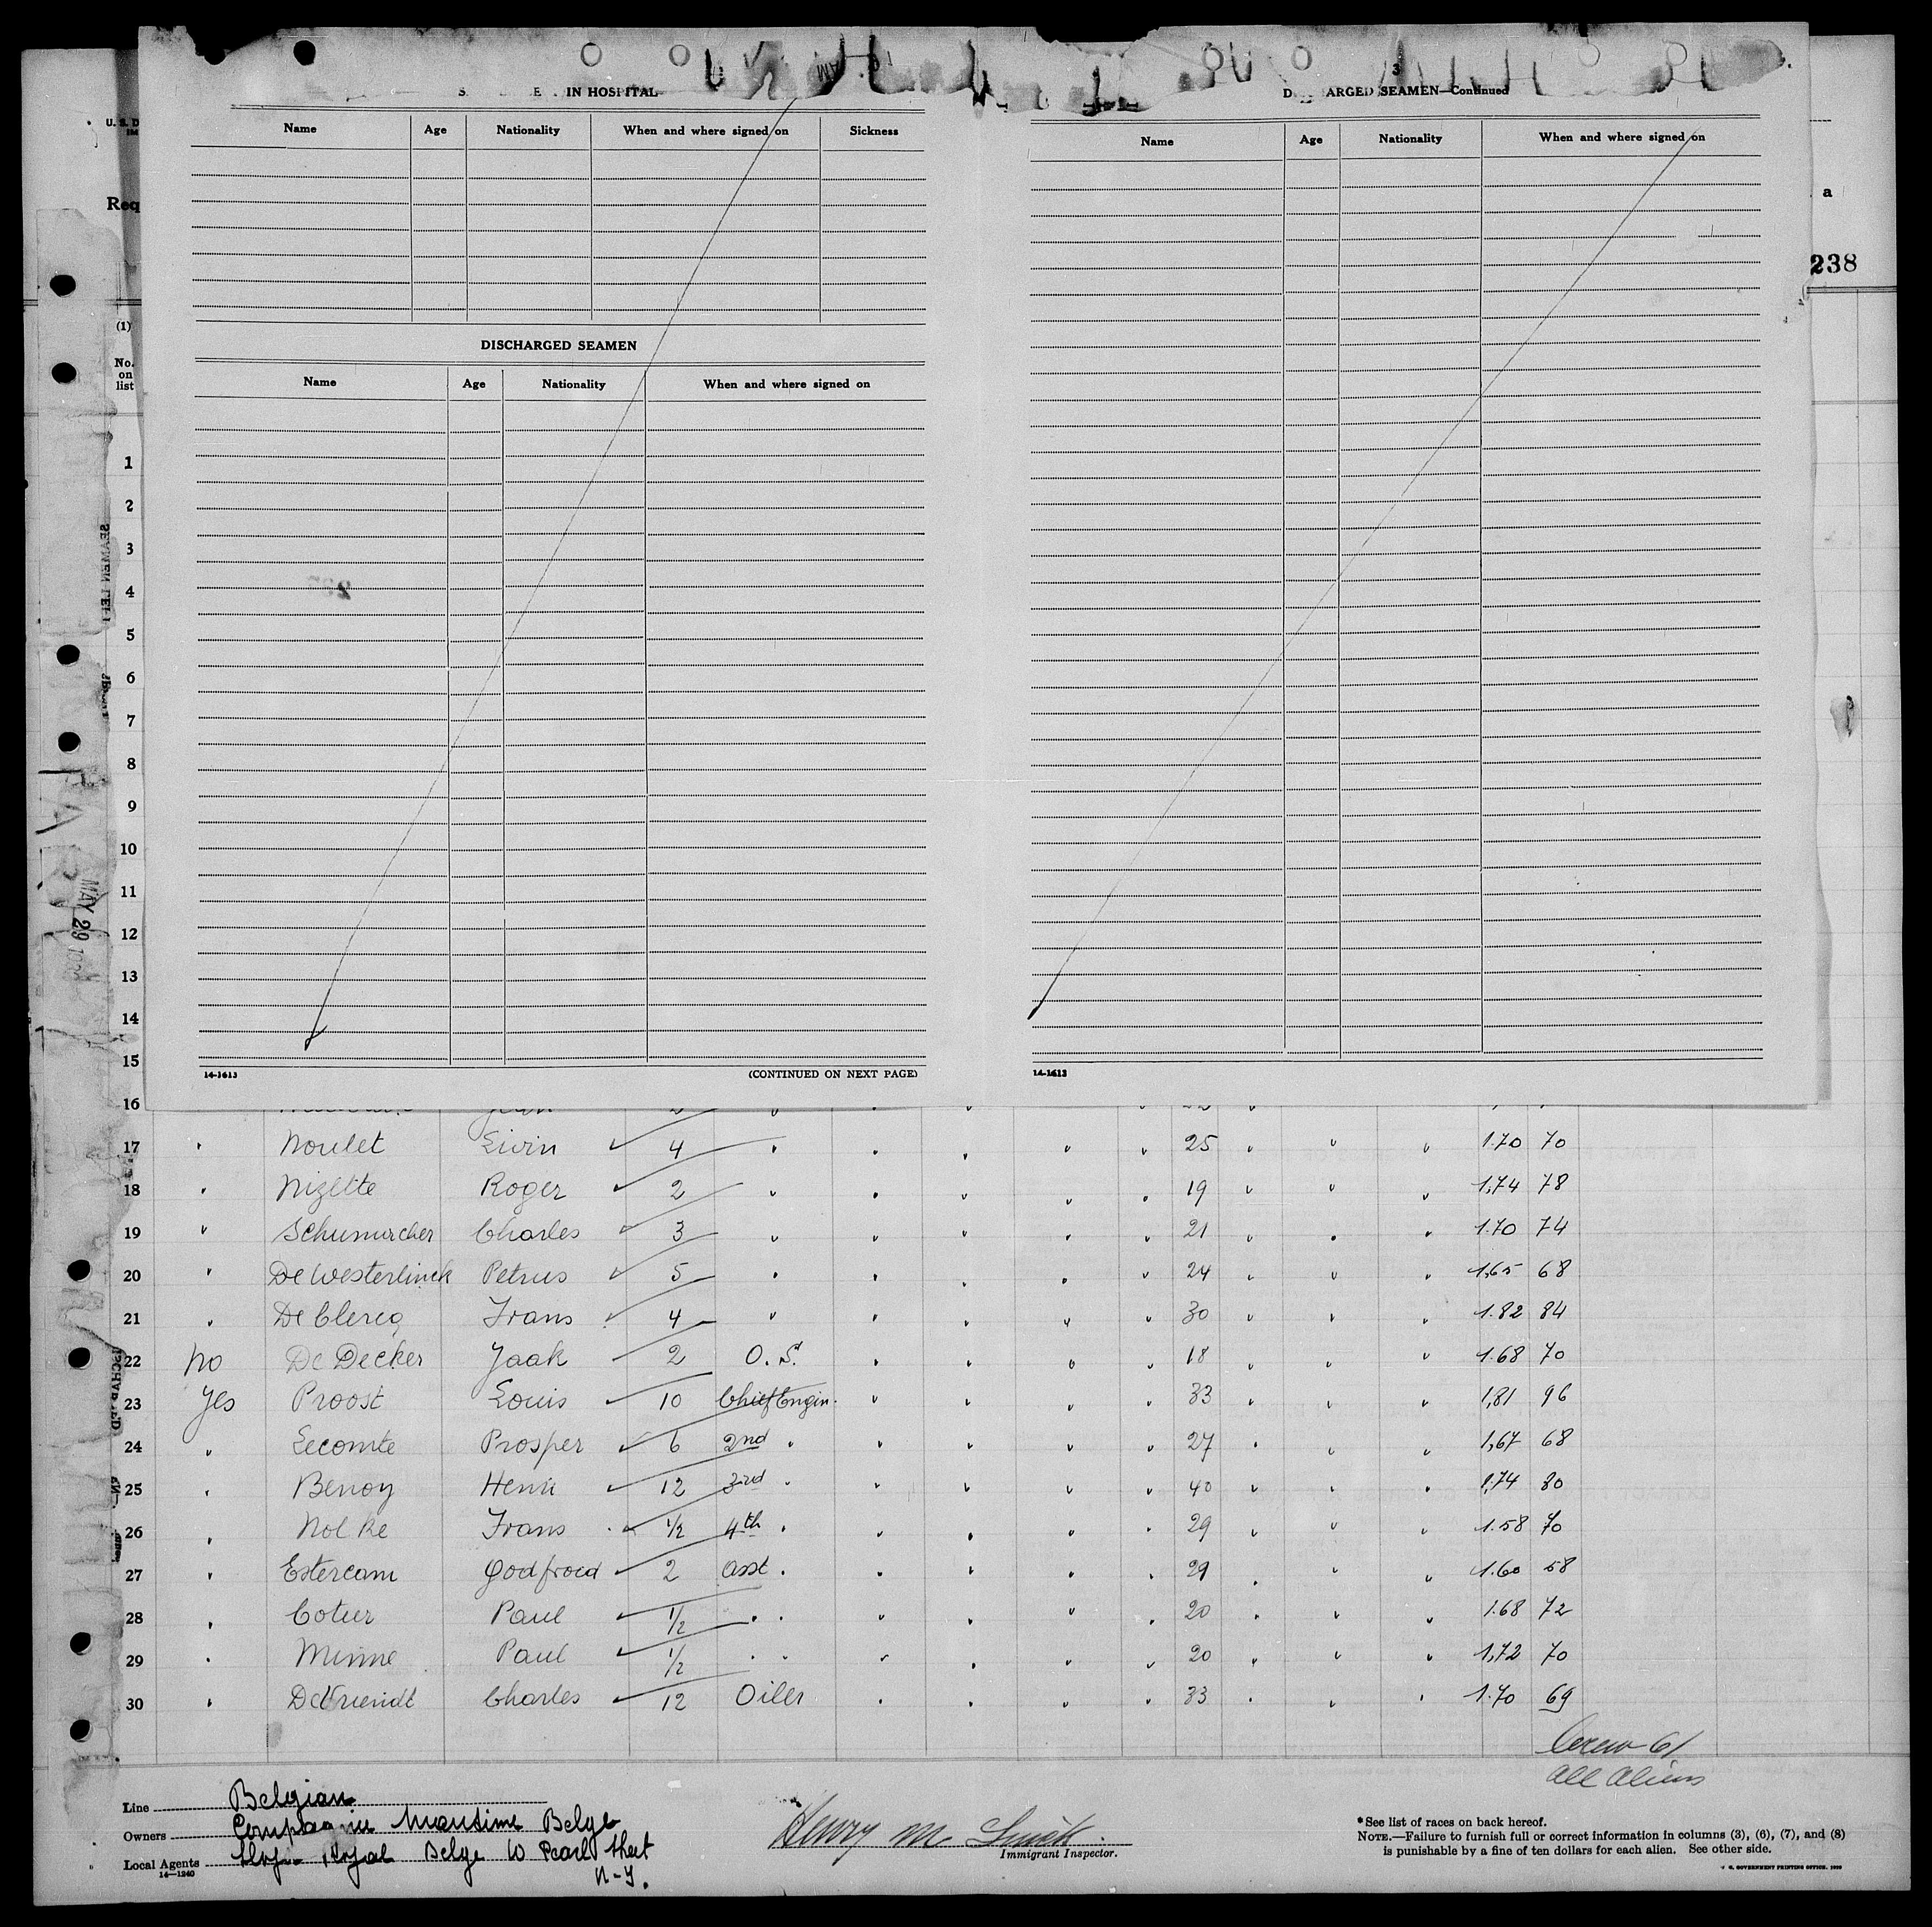 IN HOSPITAL
Name Age Nationality When and where signed on Sickness
DISCHARGED SEAMEN
Name Age Nationality When and where signed on
14-1613 (CONTINUED ON NEXT PAGE)
3
ARGED SEAMEN—Continued
Name Age Nationality When and where signed on
14-1613
U. S. D
IM
Req
a
238
(1)
No. on list
MAY 29
1
2
3
4
5
6
7
8
9
10
11
12
13
14
15
16
17 " Noulet Livin 4 " " " " " 25 " " " 1.70 70
18 " Nizette Roger 2 " " " " " 19 " " " 1,74 78
19 " Schumacher Charles 3 " " " " " 21 " " " 1.70 74
20 " De Westerlinck Petrus 5 " " " " " 24 " " " 1,65 68
21 " De Clercq Frans 4 " " " " " 30 " " " 1.82 84
22 no De Decker Jaak 2 O.S. " " " " 18 " " " 1.68 70
23 yes Proost Louis 10 Chief Engin. " " " " 33 " " " 1,81 96
24 " Lecomte Prosper 6 2nd " " " " " 27 " " " 1,67 68
25 " Benoy Henri 12 3rd " " " " " 40 " " " 1,74 80
26 " Nolke Frans 1/2 4th " " " " " 29 " " " 1.58 70
27 " Estercam Godfroid 2 asst " " " " " 29 " " " 1.60 58
28 " Coteur Paul 1/2 " " " " " " 20 " " " 1.68 72
29 " Minne Paul 1/2 " " " " " " 20 " " " 1,72 70
30 " De Vriendt Charles 12 Oiler " " " " 33 " " " 1.70 69
Crew 61
all aliens
Line Belgian
Owners Compagnie Maritime Belge
Local Agents Royal Belge 10 Pearl Street
N-Y.
14—1240
Henry M.
Immigrant Inspector.
*See list of races on back hereof.
NOTE.—Failure to furnish full or correct information in columns (3), (6), (7), and (8)
is punishable by a fine of ten dollars for each alien. See other side.
U. S. GOVERNMENT PRINTING OFFICE